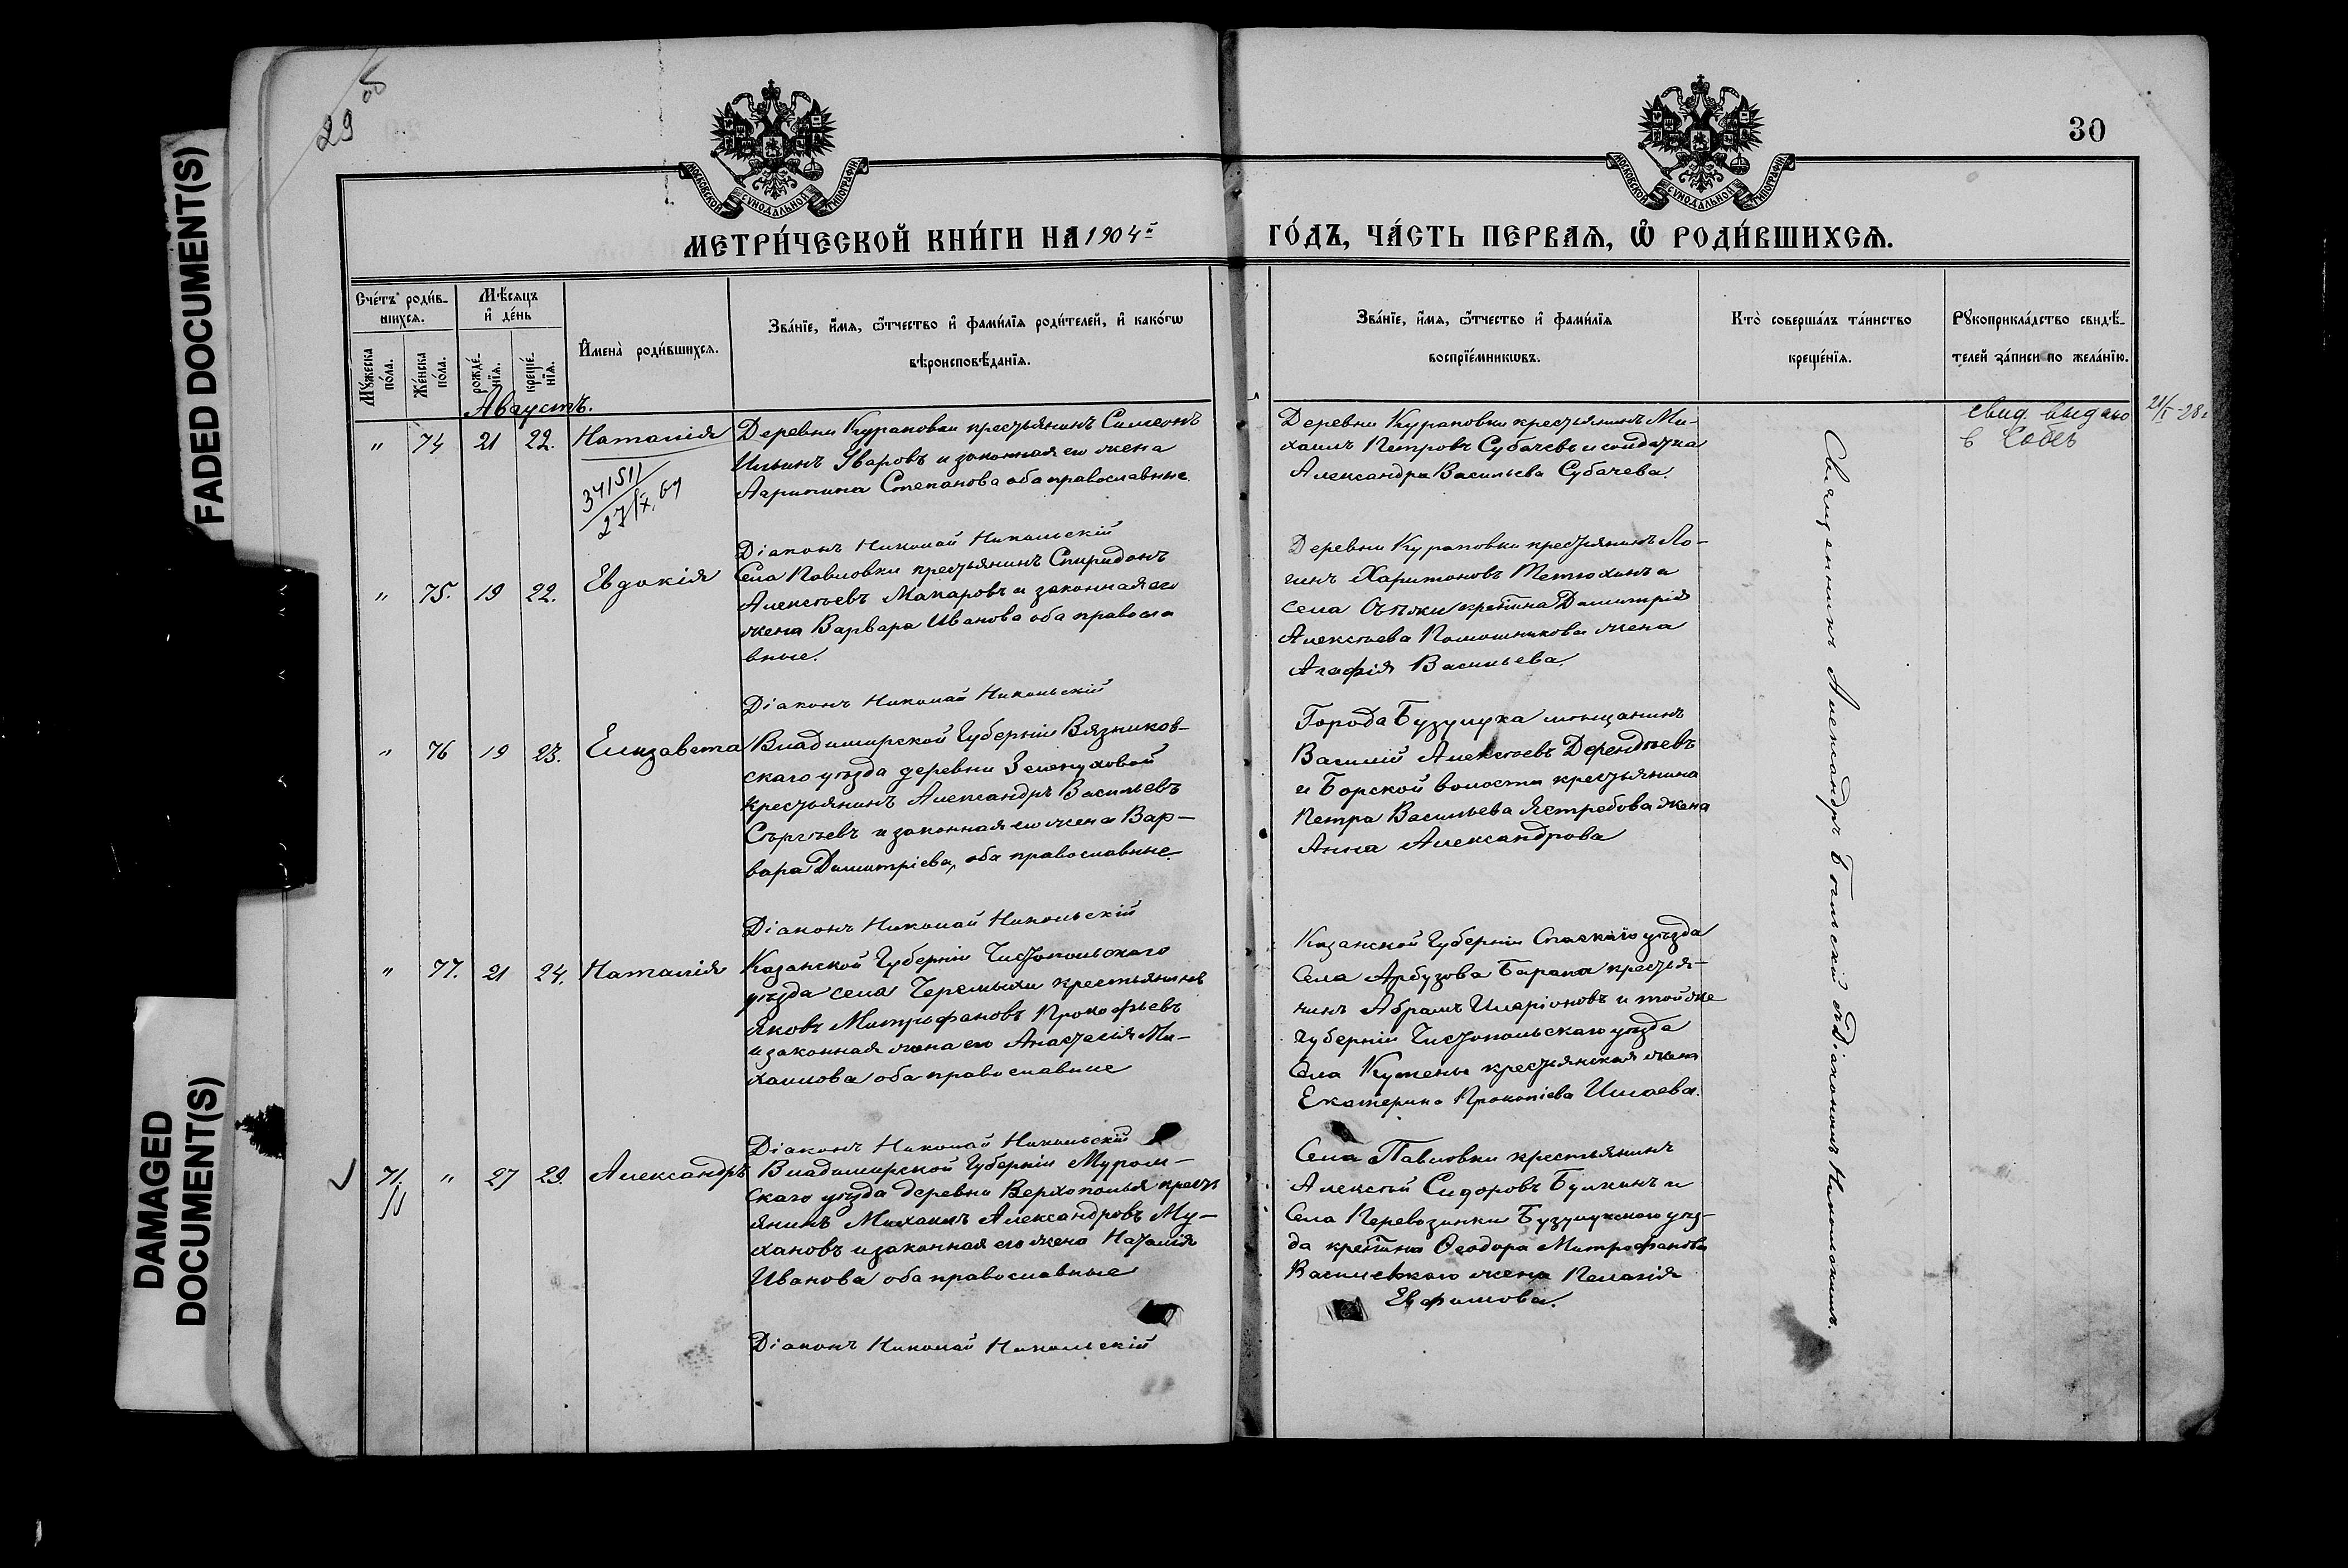 29 об
30
FADED DOCUMENT(S)
DAMAGED
DOCUMENT(S)
МОСКОВСКОЙ СѴНОДАЛЬНОЙ ТИПОГРАФІИ
МОСКОВСКОЙ СѴНОДАЛЬНОЙ ТИПОГРАФІИ
МЕТРИ́ЧЕСКОЙ КНИ́ГИ НА 1904й
ГО́ДЪ, ЧА́СТЬ ПЕРВАѦ, Ѡ РОДИ́ВШИХСѦ.
Сче́тъ роди́в-
шихсѧ.
Мꙋ́жеска
по́ла.
Же́нска
по́ла.
Мѣ́сѧцъ
и҆ де́нь
рожде́-
нїѧ.
креще́-
нїѧ.
И҆мена̀ роди́вшихсѧ.
Зва́нїе, и҆́мѧ, ѻ҆́тчество и҆ фами́лїѧ роди́телей, и҆ како́гѡ
вѣроисповѣ́данїѧ.
Зва́нїе, и҆́мѧ, ѻ҆́тчество и҆ фами́лїѧ
воспрїе́мникѡвъ.
Кто̀ соверша́лъ та́инство
креще́нїѧ.
Рꙋкоприкла́дство свидѣ́-
телей за́писи по жела́нїю.
Августъ.
" 74 21 22. Наталія
34 1511
27/X. 69
Деревни Кураповки крестьянинъ Симеонъ
Ильинъ Уваровъ и законная его жена
Агрипина Степанова оба православные
Діаконъ Николай Никольскій
Деревни Кураповки крестьянинъ Ми-
хаилъ Петровъ Субачевъ и солдатка
Александра Васильева Субачева.
свид. выдано 21/I-28г
в
" 75. 19 22. Евдокія
Села Павловки крестьянинъ Спиридонъ
Алексѣевъ Макаровъ и законная его
жена Варвара Иванова оба правосла
вные.
Діаконъ Николай Никольскій
Деревни Кураповки крестьянинъ Ло-
гинъ Харитоновъ Тетюхинъ и
села Съѣзжи крестьянина Димитрія
Алексѣева Помошникова жена
Агафія Васильева.
" 76 19 23. Елизавета
Владимирской Губерніи Вязников-
скаго уѣзда деревни Зеленуховой
крестьянинъ Александръ Васильевъ
Сергѣевъ и законная его жена Вар-
вара Димитріева, оба православные
Діаконъ Николай Никольскій
Города Бузулука мѣщанинъ
Василій Алексѣевъ Дерендѣевъ
и Борской волости крестьянина
Петра Васильева Ястребова жена
Анна Александрова
" 77. 21 24. Наталія
Казанской Губерніи Чистопольскаго
уѣзда села Черемыхи крестьянинъ
Яковъ Митрофановъ Прокофьевъ
и законная жена его Анастасія Ми-
хаилова оба православные
Діаконъ Николай Никольскій
Казанской Губерніи Спаскаго уѣзда
Села Арбузова Барана крестья-
нинъ Абрамъ Иларіоновъ и той же
губерніи Чистопольскаго уѣзда
Села Кутемы крестьянская жена
Екатерина Прокопіева Ишаева.
71. " 27 29. Александръ
Владимирской Губерніи Муром-
скаго уѣзда деревни Верхополья кресть
янинъ Михаилъ Александровъ Му-
хановъ и законная его жена Наталія
Иванова оба православные
Діаконъ Николай Никольскій
Села Павловки крестьянинъ
Алексѣй Сидоровъ Булкинъ и
Села Перевозинки Бузулукскаго уѣз-
да крестьянина Ѳеодора Митрофанова
Васильевскаго жена Пелагія
Евфимова.
Священникъ Александръ Богальскій съ Діакономъ Никольскимъ.